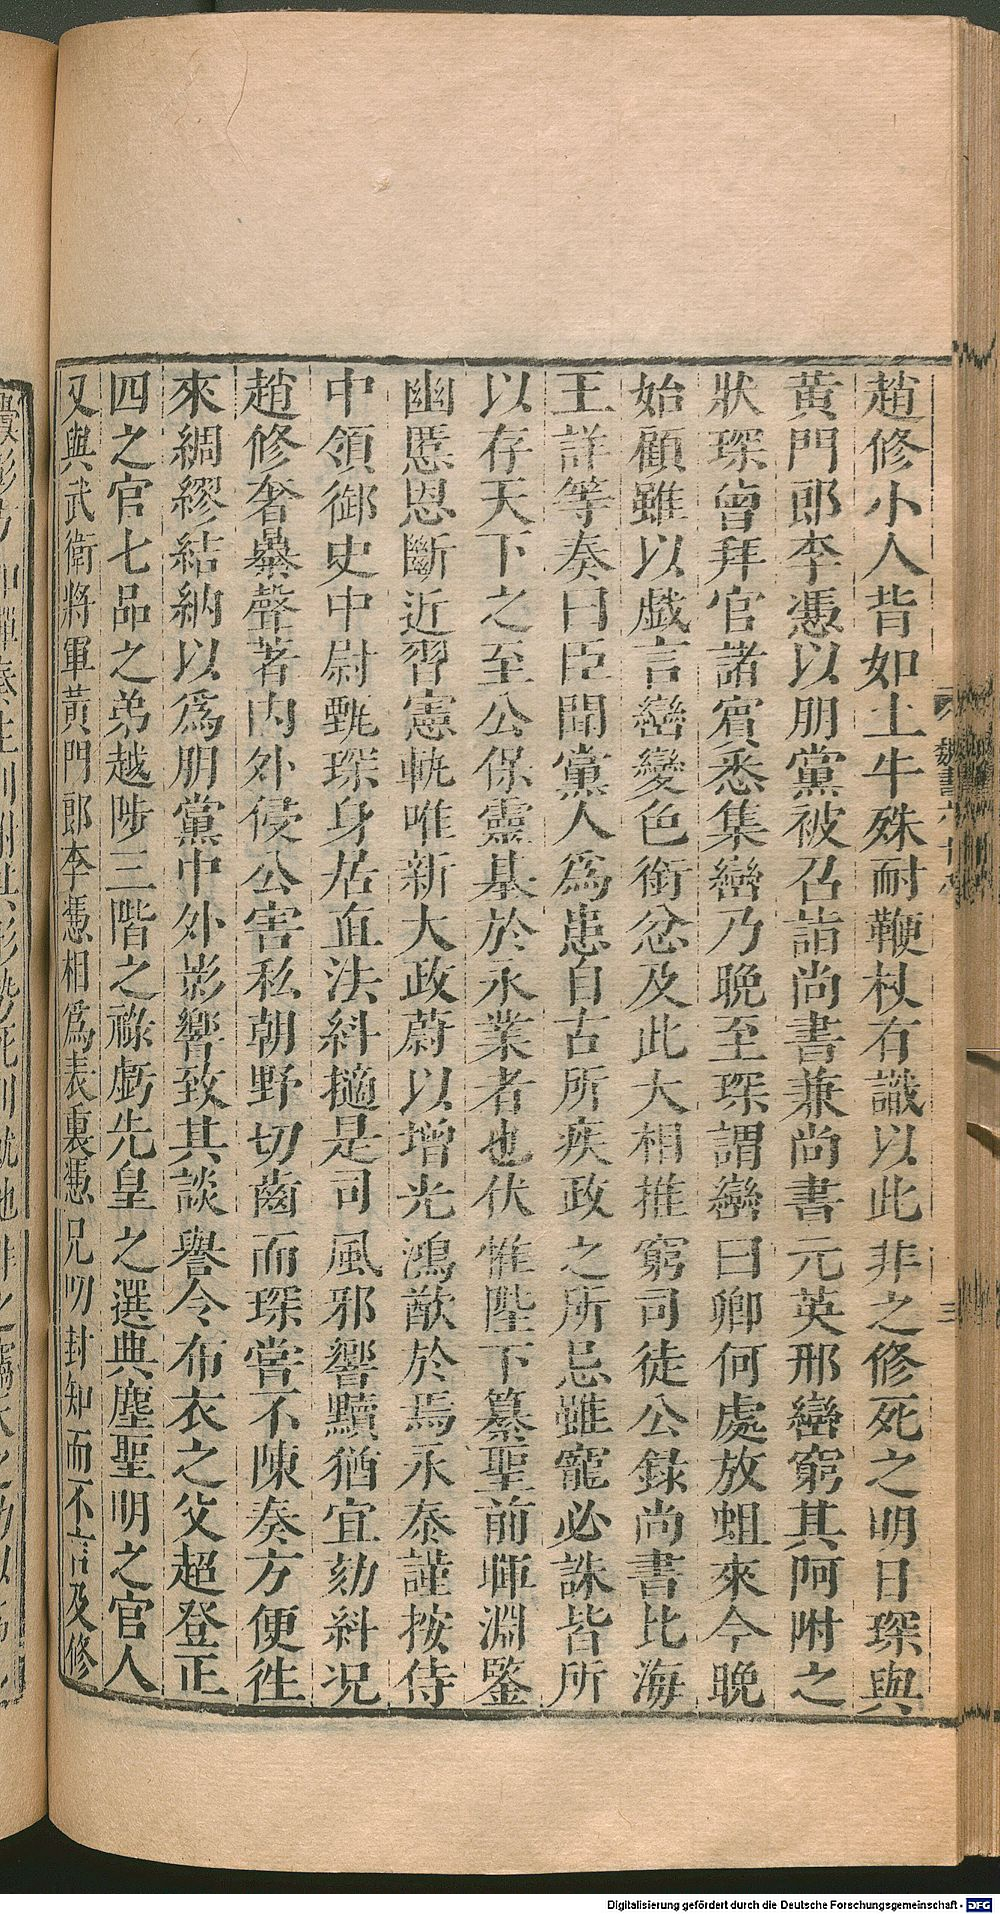 趙修小人背如土牛殊耐鞭杖有識以此非之修死之明日琛與
黃門郎李憑以朋黨被召詣尚書兼尚書元英邢巒窮其阿附之
狀琛曾拜官諸賓悉集巒乃晚至琛謂巒曰卿何處放蛆來今晚
始顧雖以戯言巒變色銜忿及此大相推窮司徒公錄尚書北海
王詳等奏曰臣聞黨人爲患自古所疾政之所忌雖寵必誅皆所
以存天下之至公保靈基於永業者也伏惟陛下纂聖前暉淵鑒
幽慝恩斷近習憲軌唯新大政蔚以增光鴻猷於焉永泰謹按侍
中領御史中尉甄琛身居直法糾擿是司風邪響黷猶宜劾糾況
趙修奢暴聲著內外侵公害私朝野切齒而琛嘗不陳奏方便徃
來綢繆結納以爲朋黨中外影響致其談譽令布衣之父超登正
四之官七品之弟越陟三階之祿虧先皇之選典塵聖明之官人
又與武衛將軍黃門郎李憑相爲表裏憑兄叨封知而不言及修
魏書六十八
三
Digitalisierung gefördert durch die Deutsche Forschungsgemeinschaft - DFG